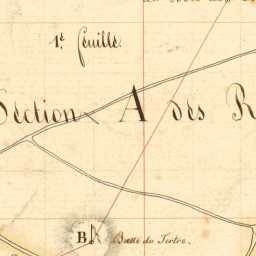 1.e feuille.
Section A des R
B Butte du Tertre.